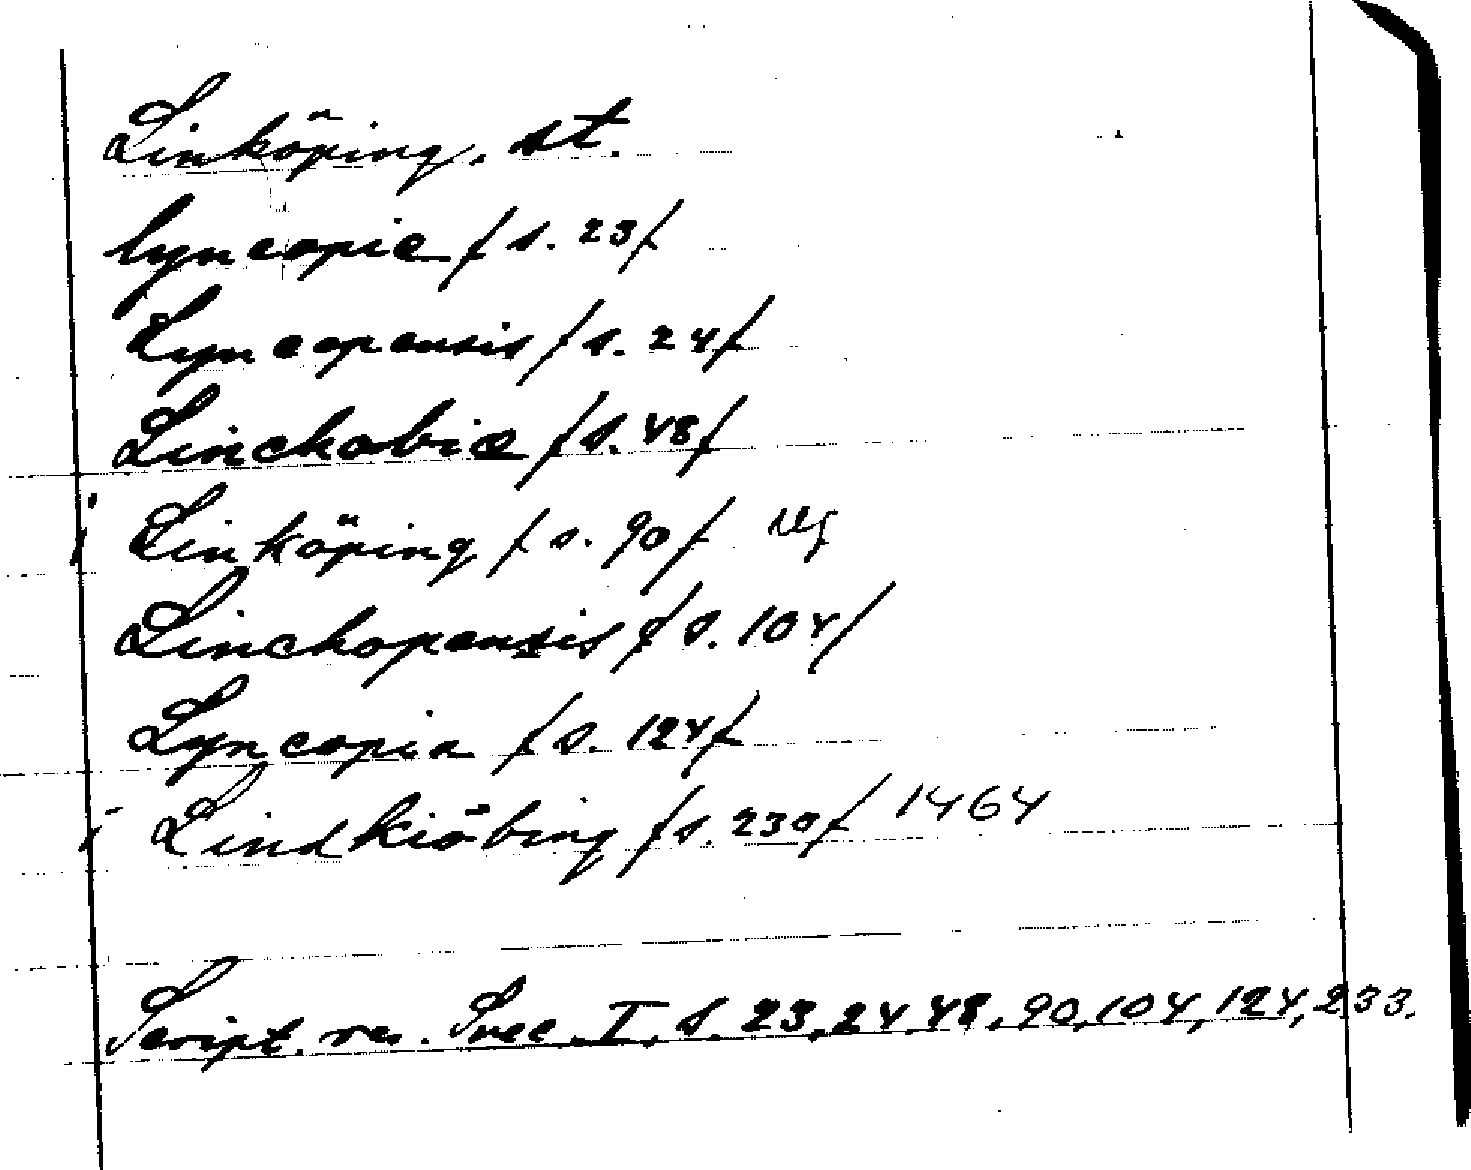 Linköping, st.
lyncopie / s. 23 /
Lyncopensis / s. 24 /
Linckobie / s. 48 /
i Linköping / s. 90 /
Linchopensis / s. 104 /
Lyncopia / s. 124 /
i Lindkiöbing / s. 230 / 1464
Script. rer. Svec. I, s. 23, 24, 48, 90, 104, 124, 233.